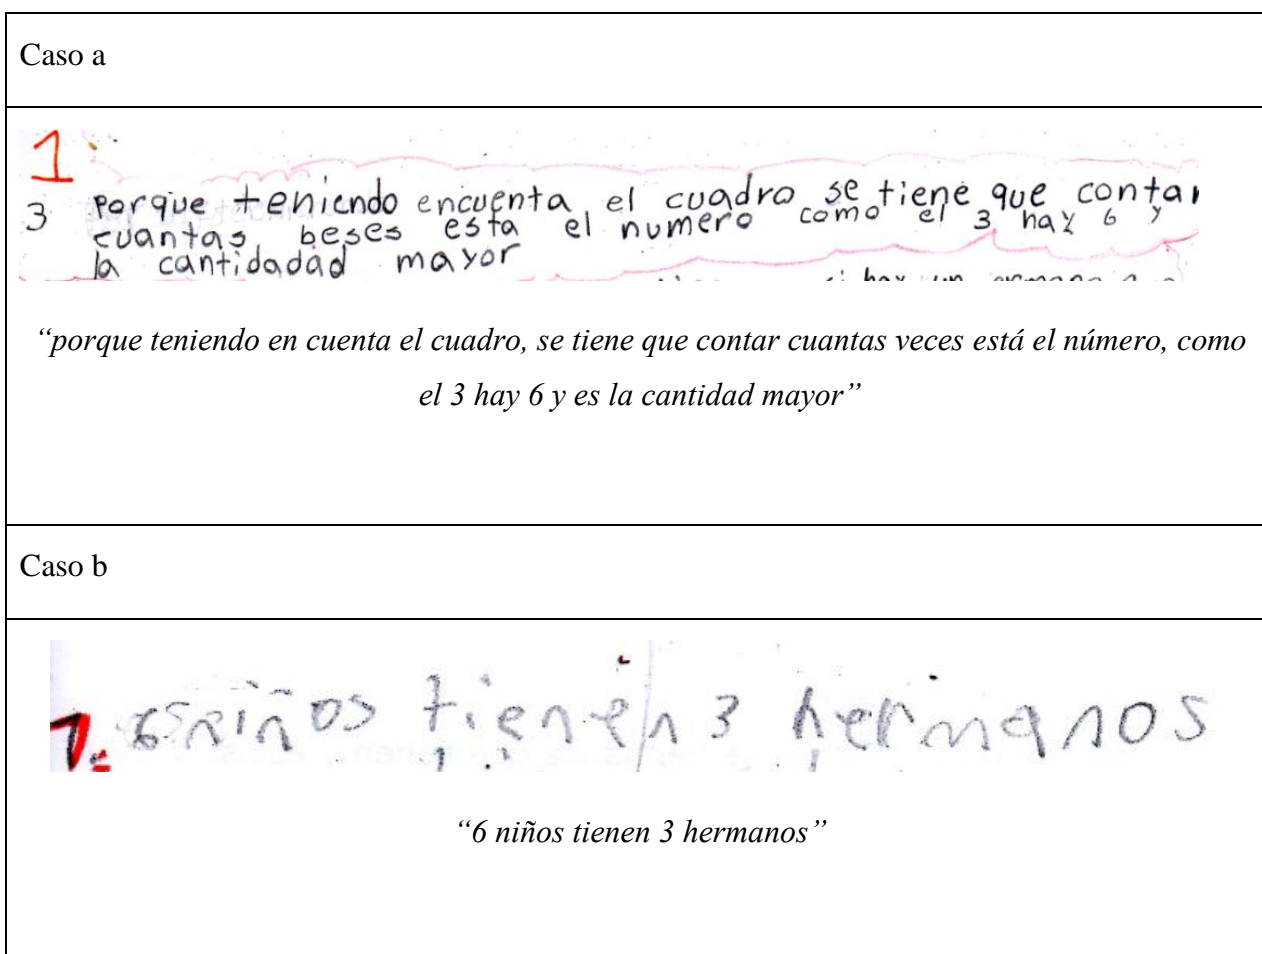 Caso a
1
3 porque teniendo encuenta el cuadro se tiene que contar
cuantas beses esta el numero como el 3 hay 6 y
la cantidadad mayor
si hay un
“porque teniendo en cuenta el cuadro, se tiene que contar cuantas veces está el número, como
el 3 hay 6 y es la cantidad mayor”
Caso b
1. 6 niños tienen 3 hermanos
“6 niños tienen 3 hermanos”